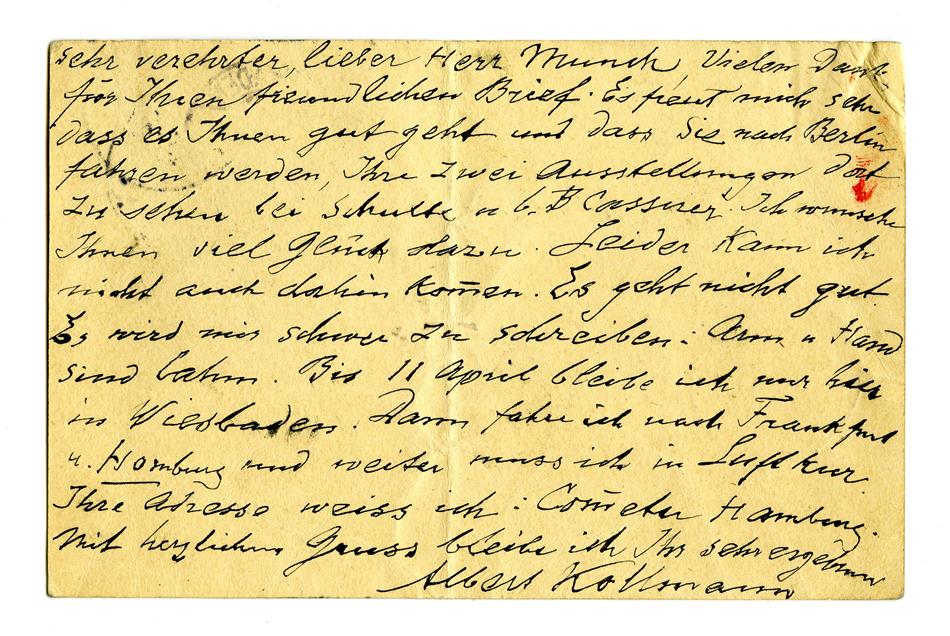 sehr verehrter, lieber Herr Munch Vielen Dank
für Ihren freundlichen Brief. Es freut mich sehr
dass es Ihnen gut geht und dass Sie nach Berlin
fahren werden, Ihre zwei Ausstellungen dort
zu sehen bei Schulte u b. B Cassirer. Ich wünsche
Ihnen viel Glück dazu. Leider kann ich
nicht auch dahin kom̄en. Es geht nicht gut.
Es wird mir schwer zu schreiben: Arm u Hand
sind lahm. Bis 11 April bleibe ich nur hier
in Wiesbaden. Dann fahre ich nach Frankfurt
u. Homburg und weiter muss ich in Luftkur
Ihre Adresse weiss ich: Com̄eter Hamburg.
Mit herzlichem Gruss bleibe ich Ihr sehr ergebener
Albert Kollmann